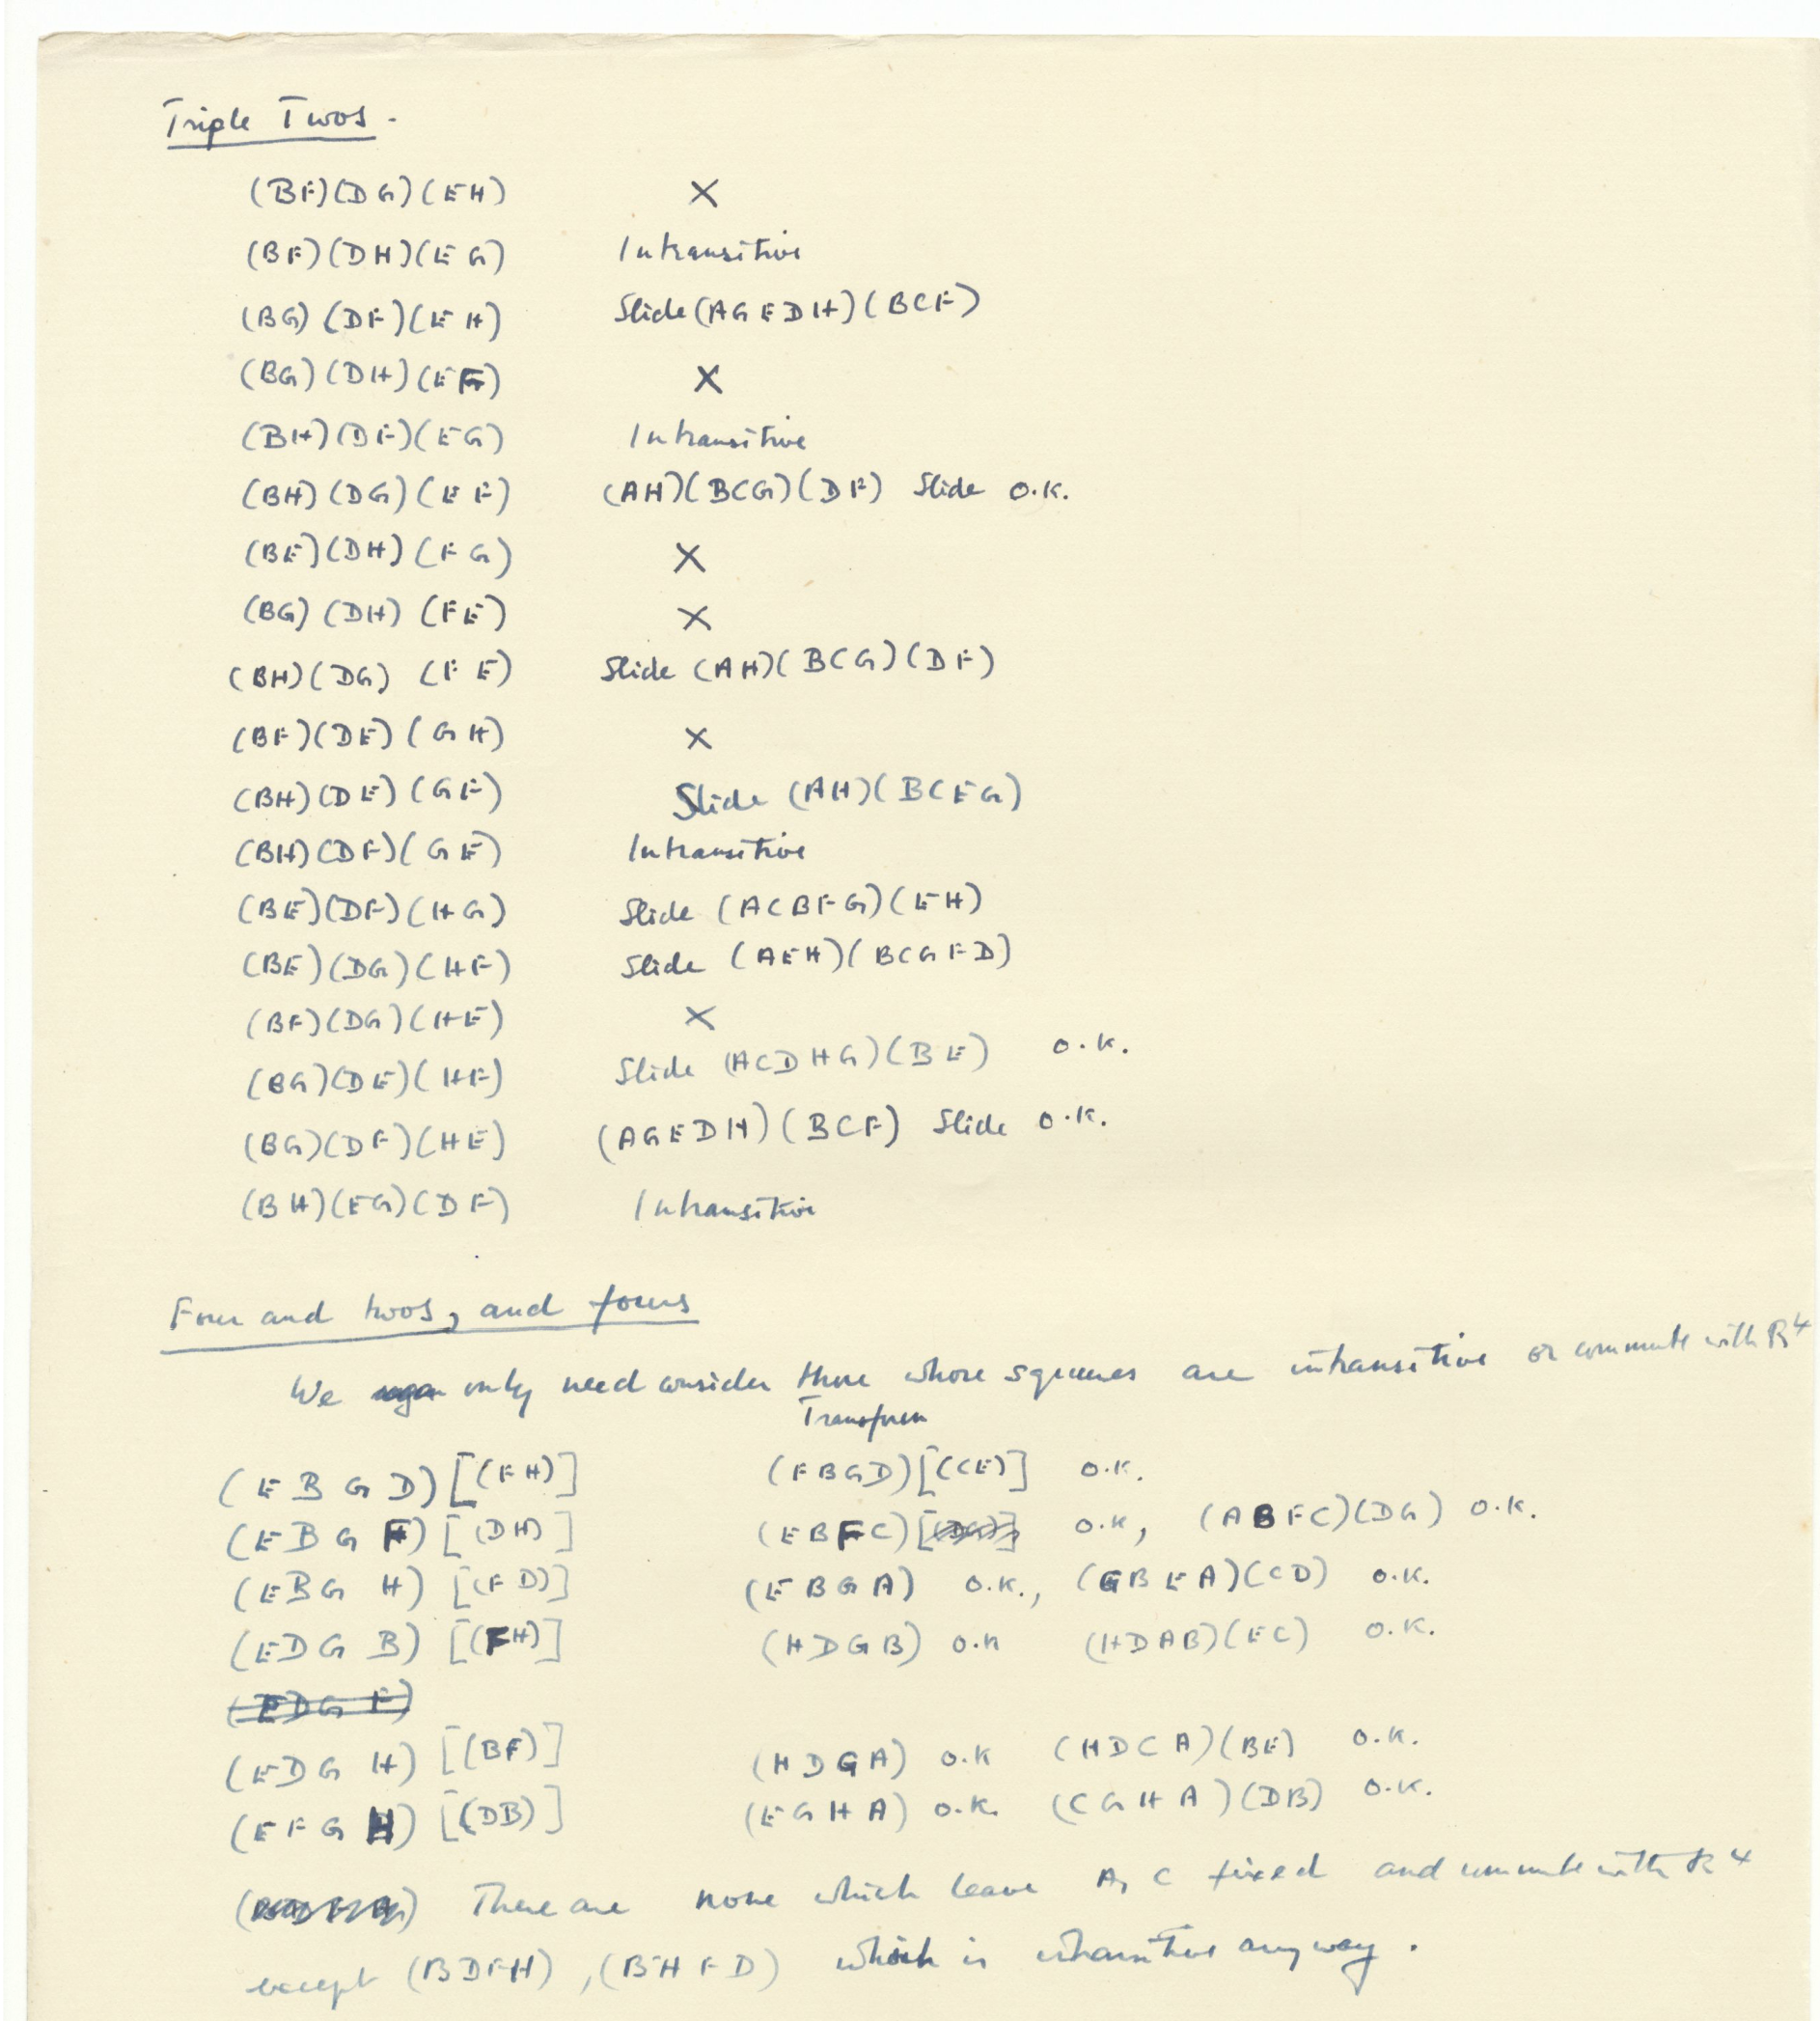 Triple Twos.
(BF)(DG)(EH) X
(BF)(DH)(EG) Intransitive
(BG)(DF)(EH) Slide (AGEDH)(BCF)
(BG)(DH)(EF) X
(BH)(DF)(EG) Intransitive
(BH)(DG)(EF) (AH)(BCG)(DF) Slide O.K.
(BE)(DH)(FG) X
(BG)(DH)(FE) X
(BH)(DG)(FE) Slide (AH)(BCG)(DF)
(BF)(DE)(GH) X
(BH)(DE)(GF) Slide (AH)(BCEG)
(BH)(DF)(GE) Intransitive
(BE)(DF)(HG) Slide (ACBFG)(EH)
(BE)(DG)(HF) Slide (AEH)(BCGFD)
(BF)(DG)(HE) X
(BG)(DE)(HF) Slide (ACDHG)(BE) O.K.
(BG)(DF)(HE) (AGEDH)(BCF) Slide O.K.
(BH)(EG)(DF) Intransitive
Four and twos, and fours
We only need consider those whose squares are intransitive or commute with R⁴
Transform
(EBGD)[(FH)] (FBGD)[(CE)] O.K.
(EBGF)[(DH)] (EBFC) O.K., (ABFC)(DG) O.K.
(EBGH)[(FD)] (EBGA) O.K., (GBEA)(CD) O.K.
(EDGB)[(FH)] (HDGB) O.K (HDAB)(EC) O.K.
(EDGF)
(EDGH)[(BF)] (HDGA) O.K (HDCA)(BE) O.K.
(EFGH)[(DB)] (EGHA) O.K. (CGHA)(DB) O.K.
There are none which leave A, C fixed and commute with R⁴
except (BDFH), (BHFD) which is intransitive anyway.